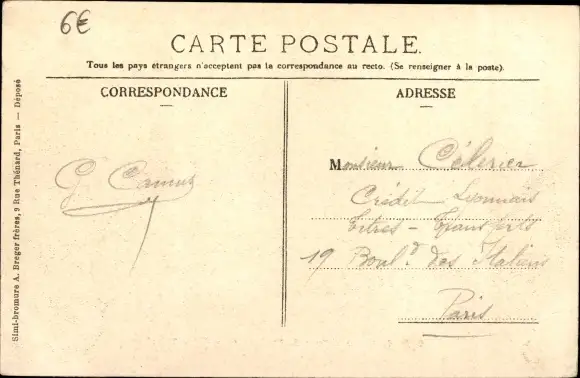 6€
CARTE POSTALE.
Tous les pays étrangers n'acceptent pas la correspondance au recto. (Se renseigner à la poste).
CORRESPONDANCE
ADRESSE
G. Camus
Monsieur Célerier
Crédit Lyonnais
Titres - Transferts
19 Boul.d des Italiens
Paris
Simi-bromure A. Breger frères, 9 Rue Thénard, Paris — Déposé